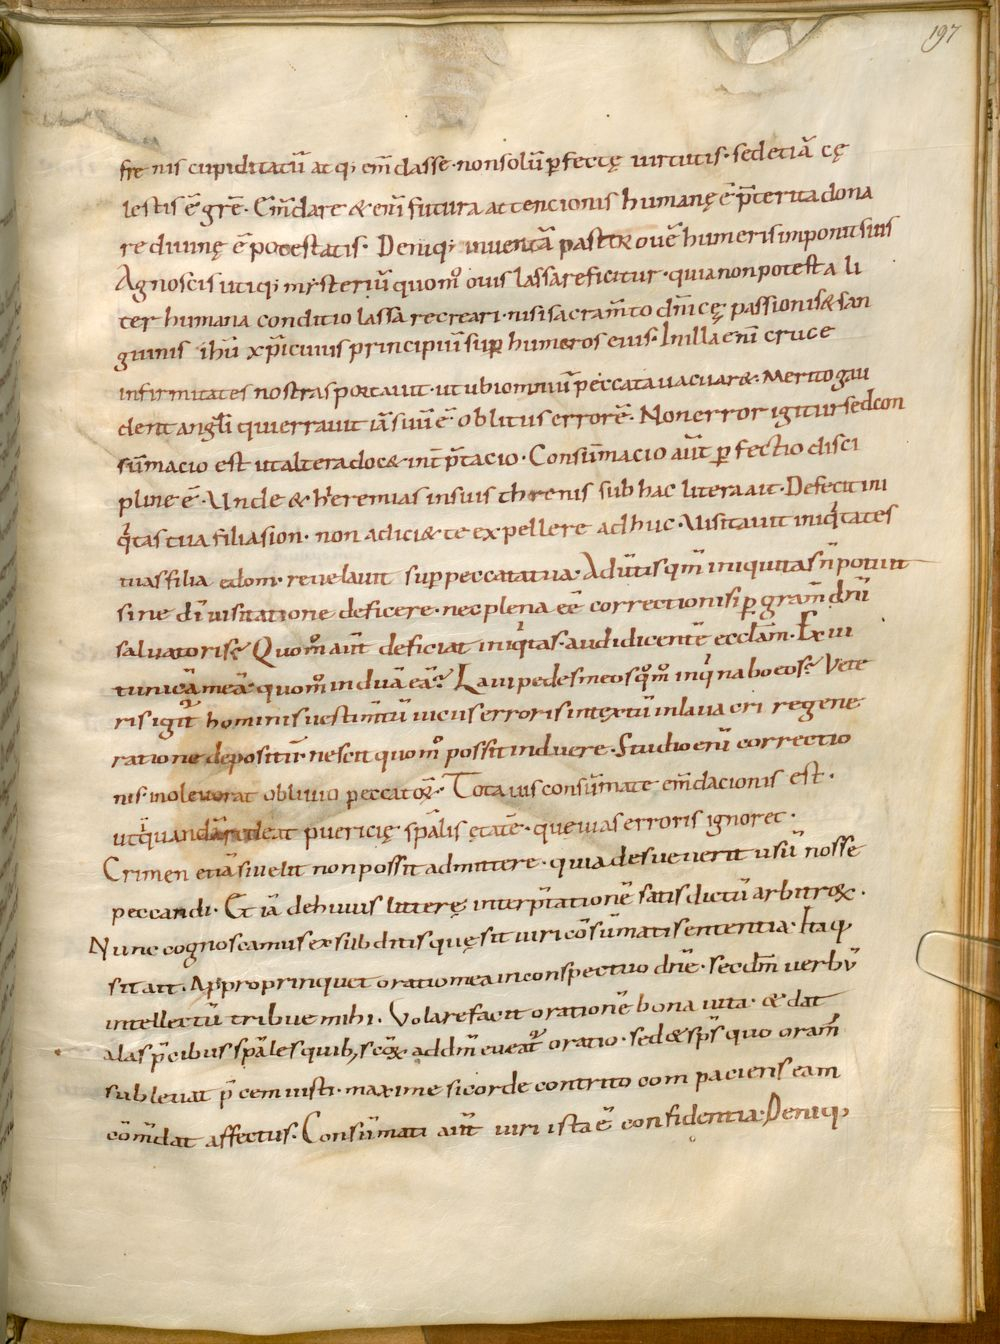 197
fre nis cupiditatū atq; em̄dasse · non solū ꝑfectę uirtutis · sed etiā cę
lestis ē grē · Em̄dare & eni futura attencionis humanę ē p̄terita dona
re diuinę ē potestatis · Deniq; inuentā pastor ouē humeris imponit suis
Agnoscis utiq; mysteriū quom̊ ouis lassa reficitur · quia non potest ali
ter humana conditio lassa recreari · nisi sacram̄to dn̄icę passionis & san
guinis ihū xp̄i cuius principiū suꝑ humeros eius · In illa eni cruce
infirmitates nostras portauit · ut ubi omniū peccata uacuar& · Merito gau
dent angli qui errauit iā suū ē oblitus errorē · Non error igitur sed con
sūmacio est ut altera doc& int̄p̄tacio · Consūmacio aūt ꝑfectio disci
pline ē · Unde & hieremias in suis threnis sub hac litera ait · Defecit ini
q̇tas tua filia sion · non adici& te expellere adhuc · Uisitauit iniq̇tates
tuas filia edom · reuelauit suꝑ peccata tua · Aduertis qm̄ iniquitas n̄ poterit
sine dī uisitatione deficere · nec plena eē correctio nisi ꝑ gram̄ dn̄i
saluatoris · Quom̊ aūt deficiat iniq̇tas · audi dicentē eccl̄am · Exui
tunicā meā · quom̊ induā eā · Laui pedes meos qm̊ inq̇nabo eos · Vete
ris igit̃ hominis uestim̄tū uicus erroris intextū in lauacri regene
ratione depositū · nescit quom̊ possit induere · Studio eni correctio
nis · inoleuerat obliuio peccatoꝝ · Tota uis consūmate em̄dacionis est ·
ut q̇ quandā redeat puericię sp̄alis ętatē · que uias erroris ignoret ·
Crimen etiā si uelit non possit admittere · quia desueuerit usū nosse
peccandi · Et iā de huius litterę interp̄tationē satis dictū arbitror ·
Nunc cognoscamus ex subditis quę sit uiri cōsūmati sententia · Itaq;
sit ait · Appropinquet oratio mea in conspectuo dn̄e · secdm̄ uerbū
intellectū tribue mihi · Volare facit orationē bona uita · & dat
alas p̄cibus sp̄ales quib; scōꝝ ad dm̄ eueat̃ oratio · sed & sp̄s quo oram̄
subleuat p̄cem iusti · maxime si corde contrito compaciens eam
cōm̄dat affectus · Consūmati aūt uiri ista ē confidentia · Deniq;